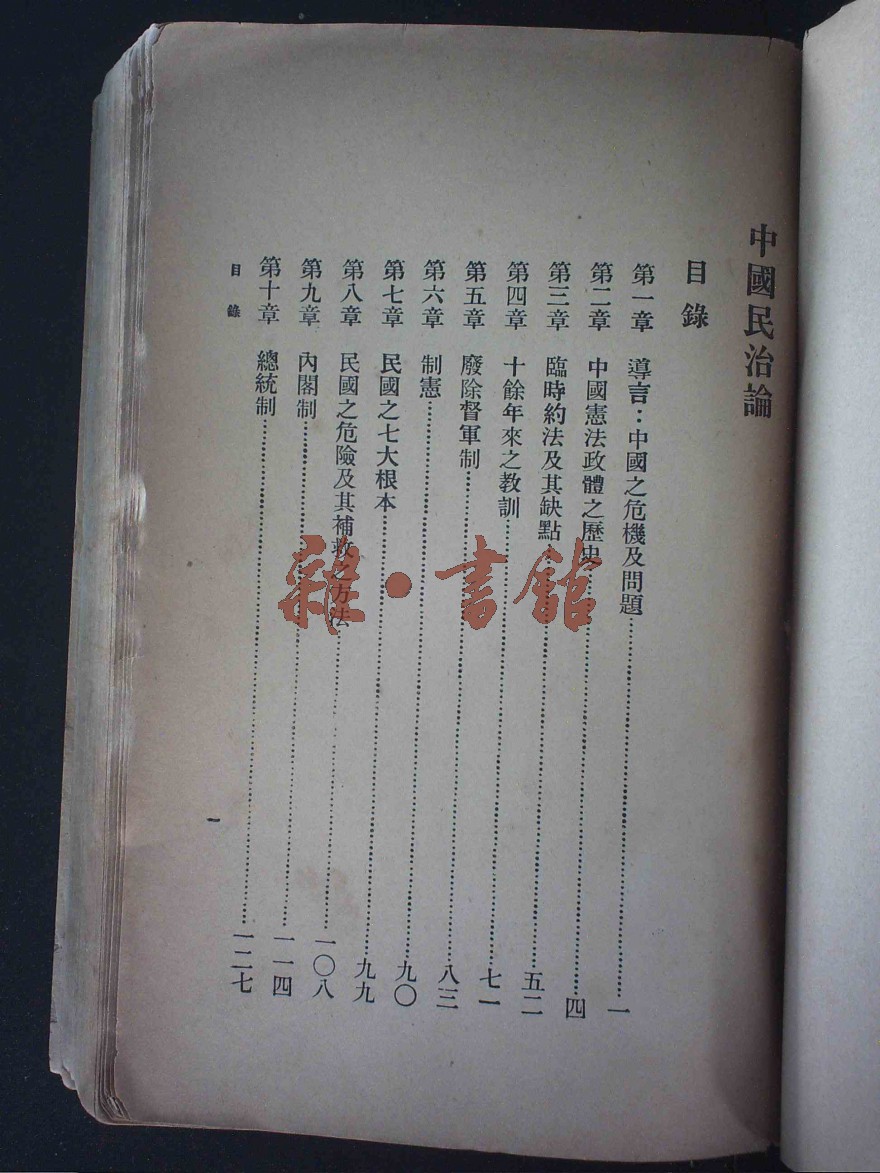 中國民治論
目錄
第一章 導言：中國之危機及問題……一
第二章 中國憲法政體之歷史……四
第三章 臨時約法及其缺點……五二
第四章 十餘年來之教訓……七一
第五章 廢除督軍制……八三
第六章 制憲……九〇
第七章 民國之七大根本……九九
第八章 民國之危險及其補救之方法……一〇八
第九章 內閣制……一一四
第十章 總統制……一二七
目錄
一
雜·書館